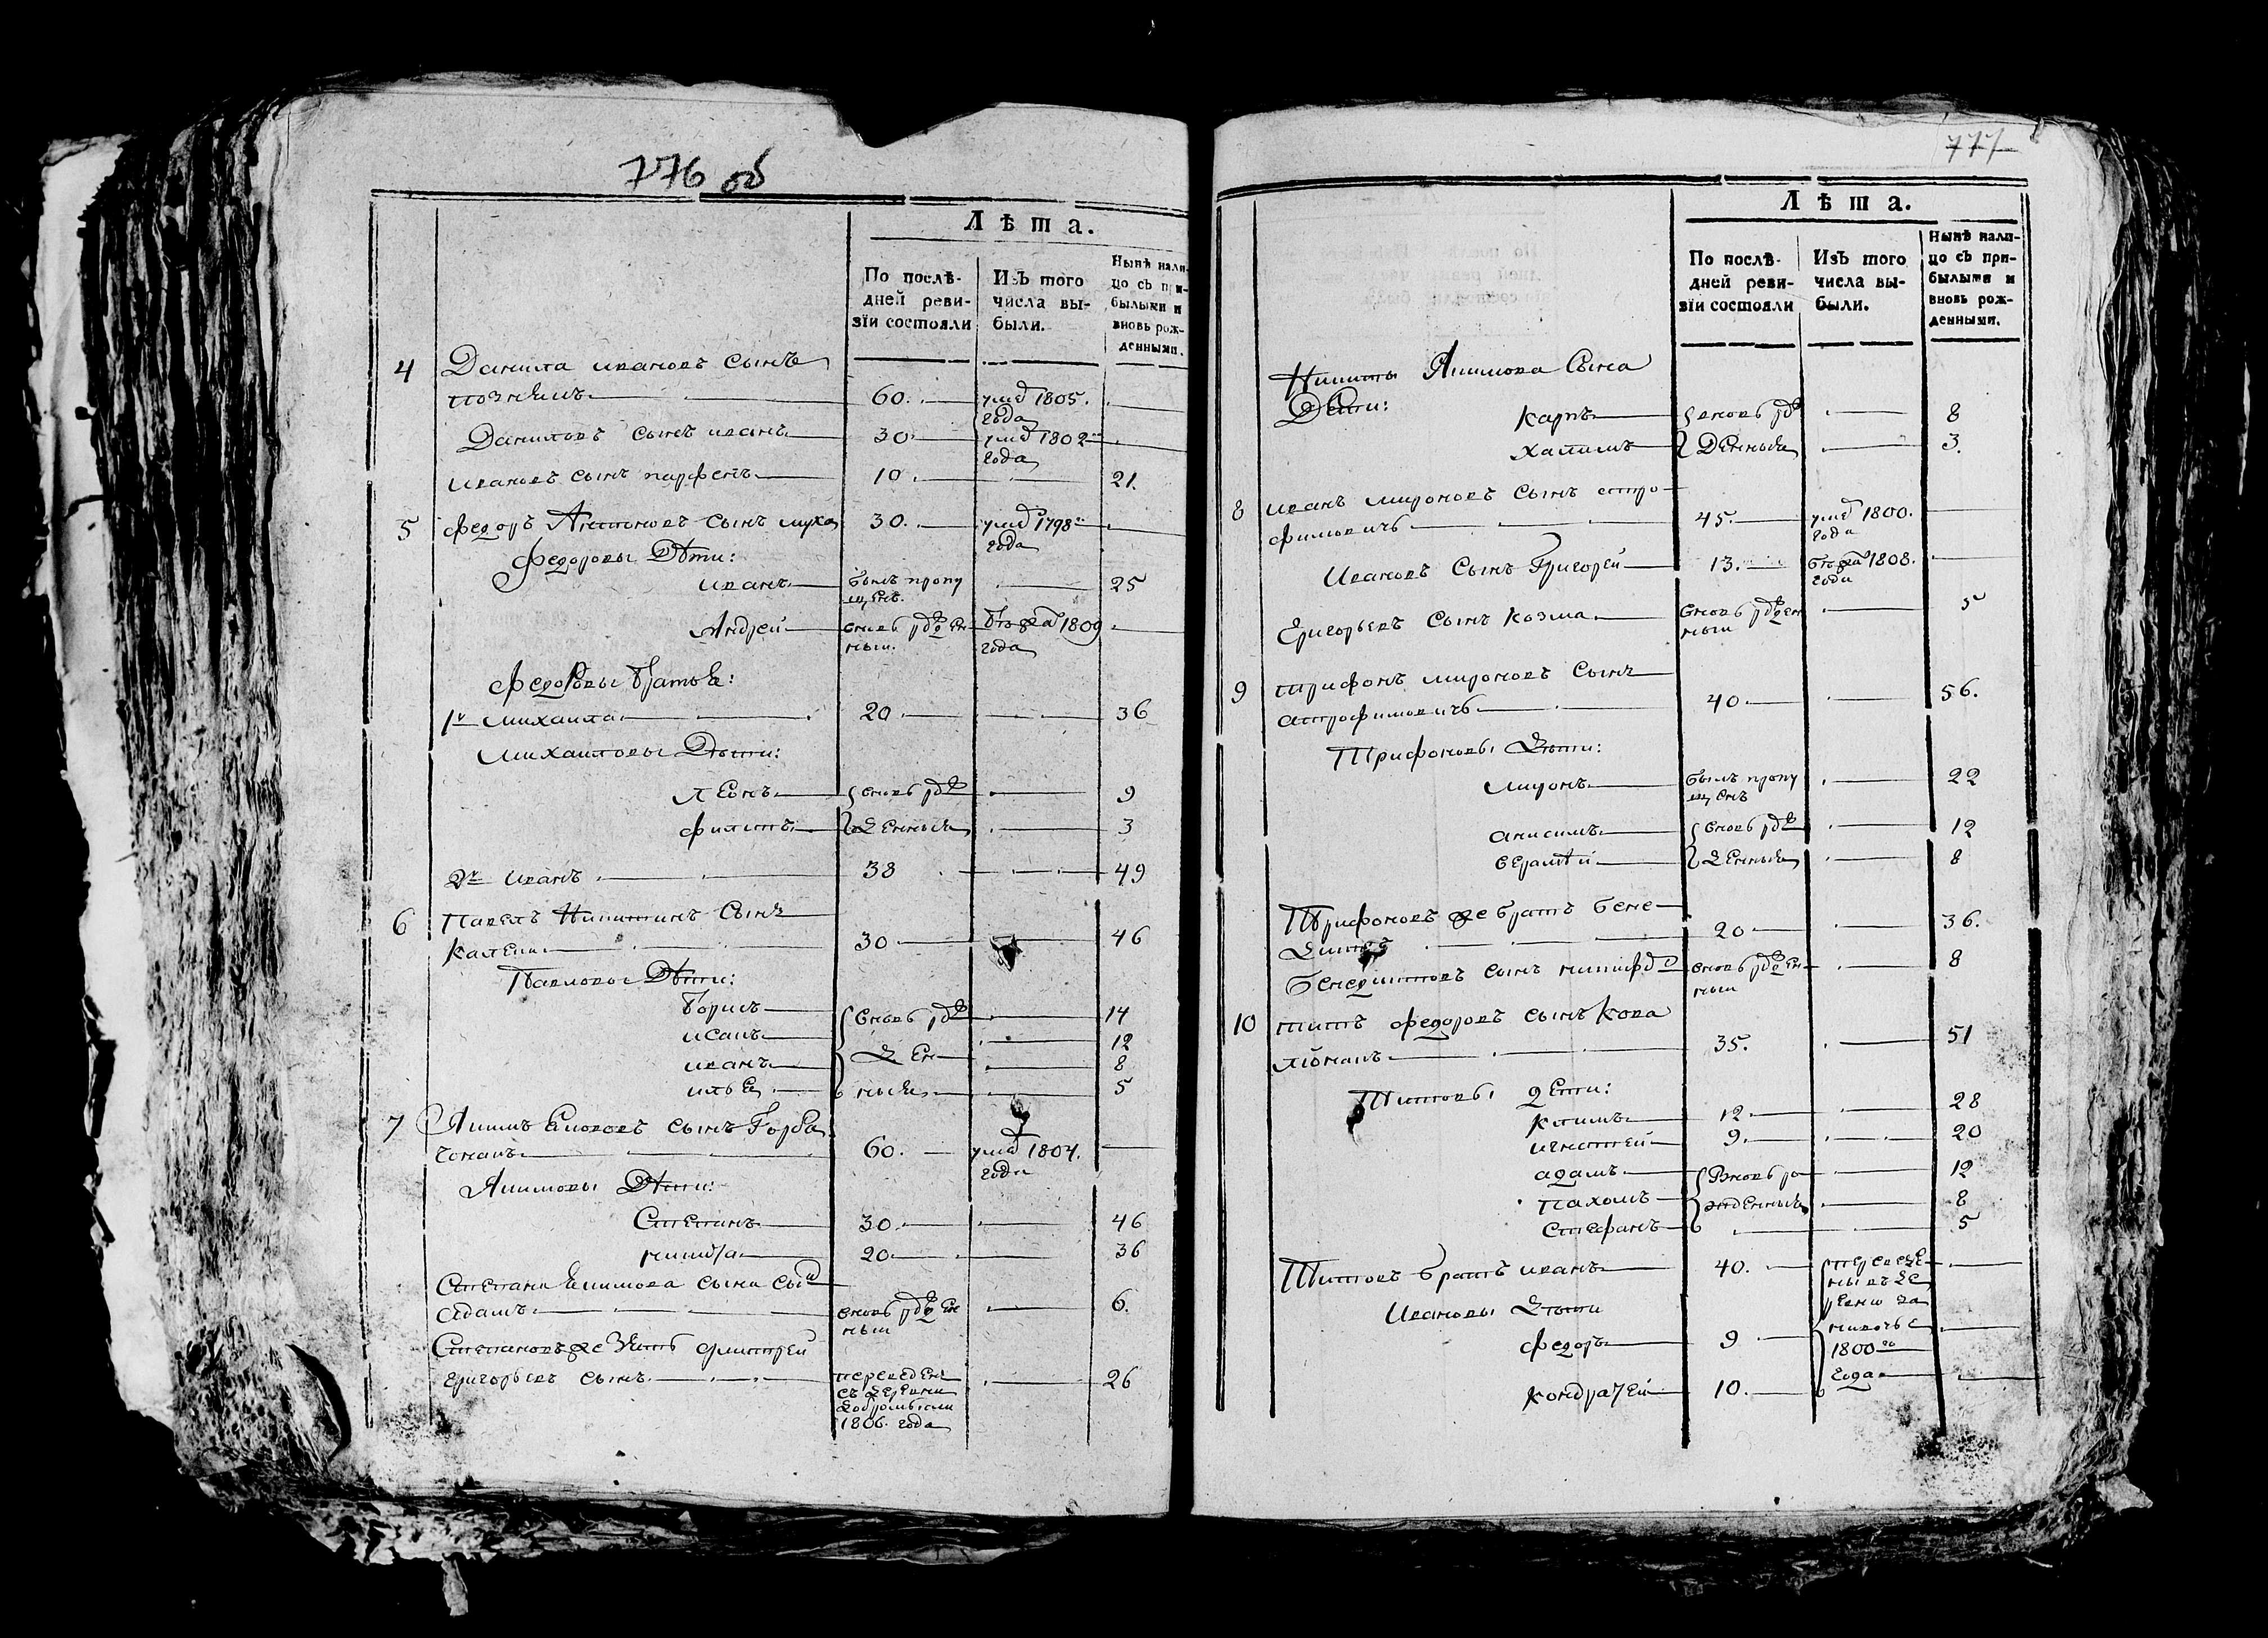 776 об
Лѣта.
По послѣ-
дней реви-
зїи состояли
Изъ того
числа вы-
были.
Нынѣ нали-
цо съ при-
былыми и
вновь рож-
денными.
4 Данила ивановъ сынъ
60. умре 1805.
года
Даниловъ сынъ иванъ 30 умре 1802
года
ивановъ сынъ парфенъ 10 21.
5 федоръ Антоновъ сынъ муха 30. умре 1798
года
федоровы Дѣти:
иванъ былъ пропу 25
щенъ.
Андрей вновь рожден бѣжа 1809
ный. года
федоровы братья:
1й михаила 20 36
михаиловы Дѣти:
леонъ вновь рож 9
филипъ денные 3
2й иванъ 38 49
6 павелъ Никитинъ сынъ
калени 30 46
Павловы Дѣти:
борисъ вновь рож 14
исакъ 12
иванъ ден 8
илья ные 5
7 Якимъ сынъ Горба
чонакъ 60. умре 1804.
года
Якимовы Дѣти:
Степанъ 30 46
никита 20 36
Степана Якимова сына сынъ
адамъ вновь рожден 6.
ный
Степановъ же Зять дмитрей
григорьевъ сынъ переведенъ 26
съ деревни
1806. года
777
Лѣта.
По послѣ-
дней реви-
зїи состояли
Изъ того
числа вы-
были.
Нынѣ нали-
цо съ при-
былыми и
вновь рож-
денными.
Никиты Якимова сына
Дети: карпъ вновь рож 8
денные 3.
8 иванъ мироновъ сынъ атро
фимовичъ 45. умре 1800.
года
Ивановъ Сынъ Григорей 13. бѣжа 1808.
года
Григорьевъ сынъ козма вновь рожден 5
ный
9 трифонъ мироновъ сынъ
атрофимовичъ 40 56.
Трифоновы Дѣти:
миронъ былъ пропу 22
щенъ
анисимъ вновь рож 12
ерамѣй денные 8
Трифоновъ же братъ бене
дитъ 20 36.
бенедиктовъ сынъ никифоръ вновь рожден 8
ный
10 титъ федоровъ сынъ кова
лионакъ 35. 51
Титовы дети:
климъ 12. 28
игнатей 9. 20
адамъ вновь ро 12
пахомъ жденные 8
стефанъ 5
Титовъ братъ иванъ 40. переведе
ны въ де
ревню за
Ивановы Дѣти
федоръ 9
1800го
кондратей 10. года